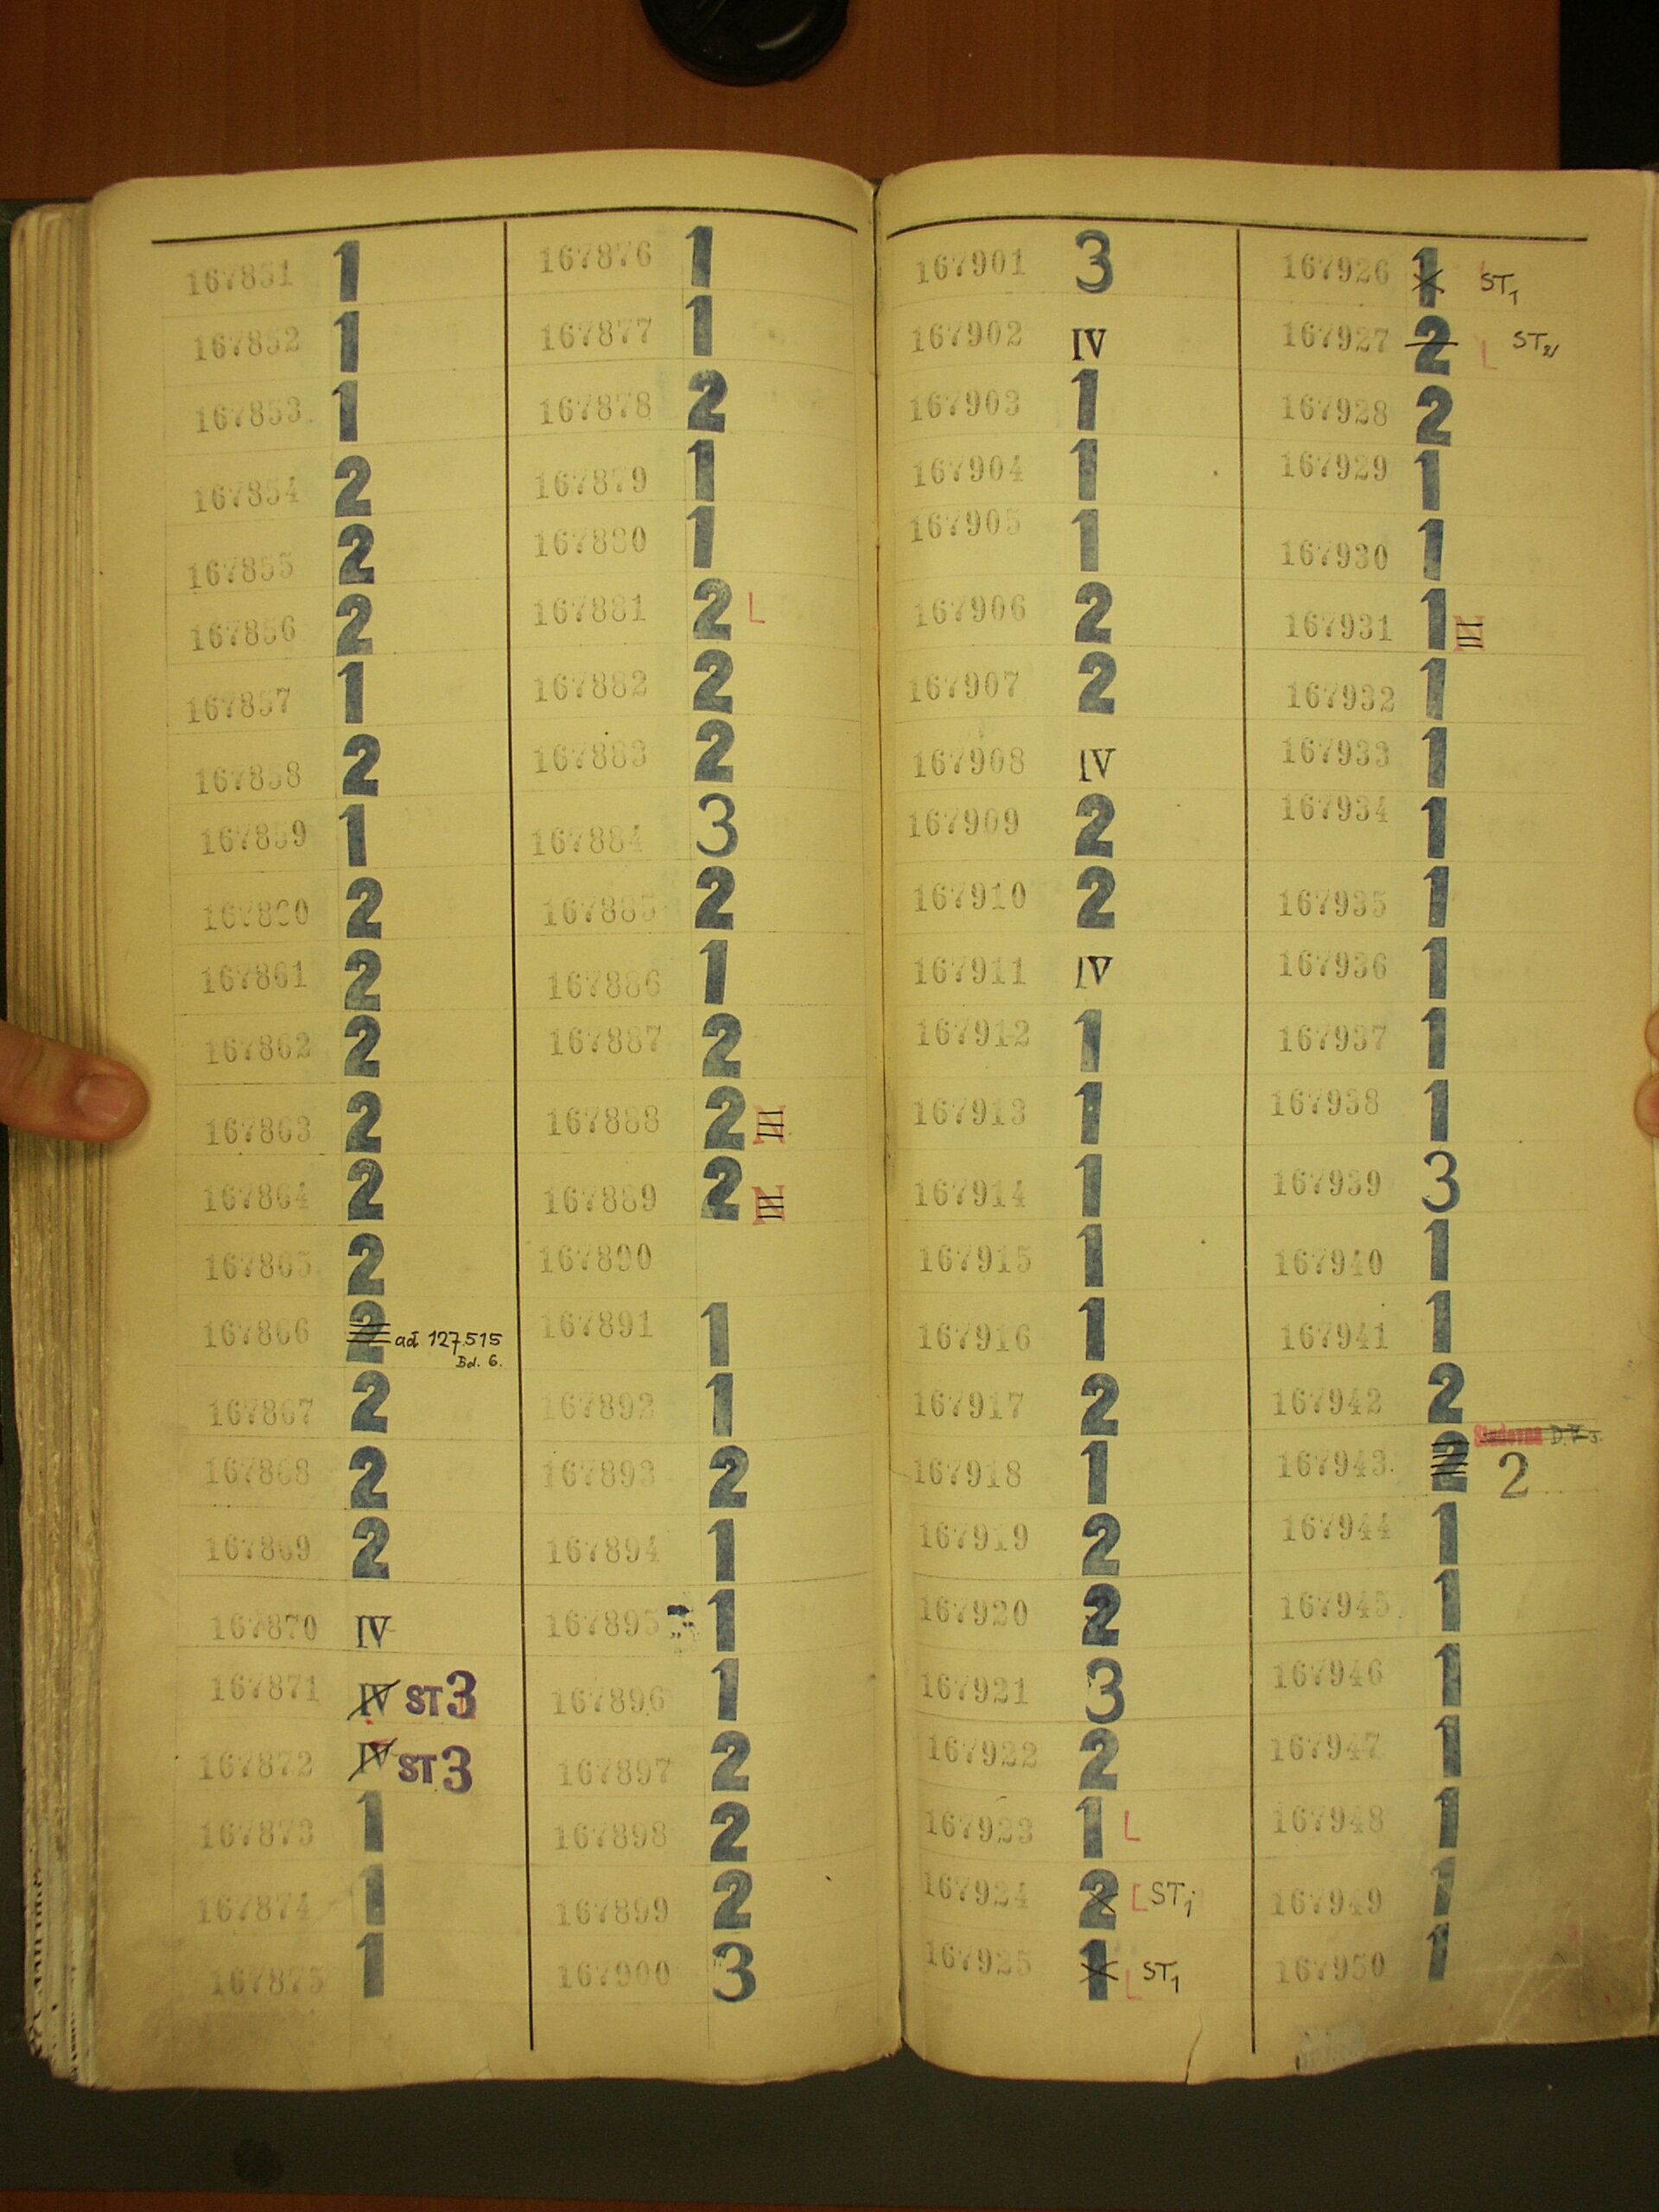 167851 1
167852 1
167853. 1
167854 2
167855 2
167856 2
167857 1
167858 2
167859 1
167860 2
167861 2
167862 2
167863 2
167864 2
167865 2
167866 2 ad 127.515
Bd. 6.
167867 2
167868 2
167869 2
167870 IV
167871 IV ST 3
167872 IV ST 3
167873 1
167874 1
167875 1
167876 1
167877 1
167878 2
167879 1
167880 1
167881 2 L
167882 2
167883 2
167884 3
167885 2
167886 1
167887 2
167888 2 N
167889 2 N
167890
167891 1
167892 1
167893 2
167894 1
167895 1
167896 1
167897 2
167898 2
167899 2
167900 3
167901 3
167902 IV
167903 1
167904 1
167905 1
167906 2
167907 2
167908 IV
167909 2
167910 2
167911 IV
167912 1
167913 1
167914 1
167915 1
167916 1
167917 2
167918 1
167919 2
167920 2
167921 3
167922 2
167923 1 L
167924 2 L ST1
167925 1 L ST1
167926 1 ST1
167927 2 L ST2
167928 2
167929 1
167930 1
167931 1 N
167932 1
167933 1
167934 1
167935 1
167936 1
167937 1
167938 1
167939 3
167940 1
167941 1
167942 2
Studovna
167943. 2 2
167944 1
167945. 1
167946 1
167947 1
167948 1
167949 1
167950 1